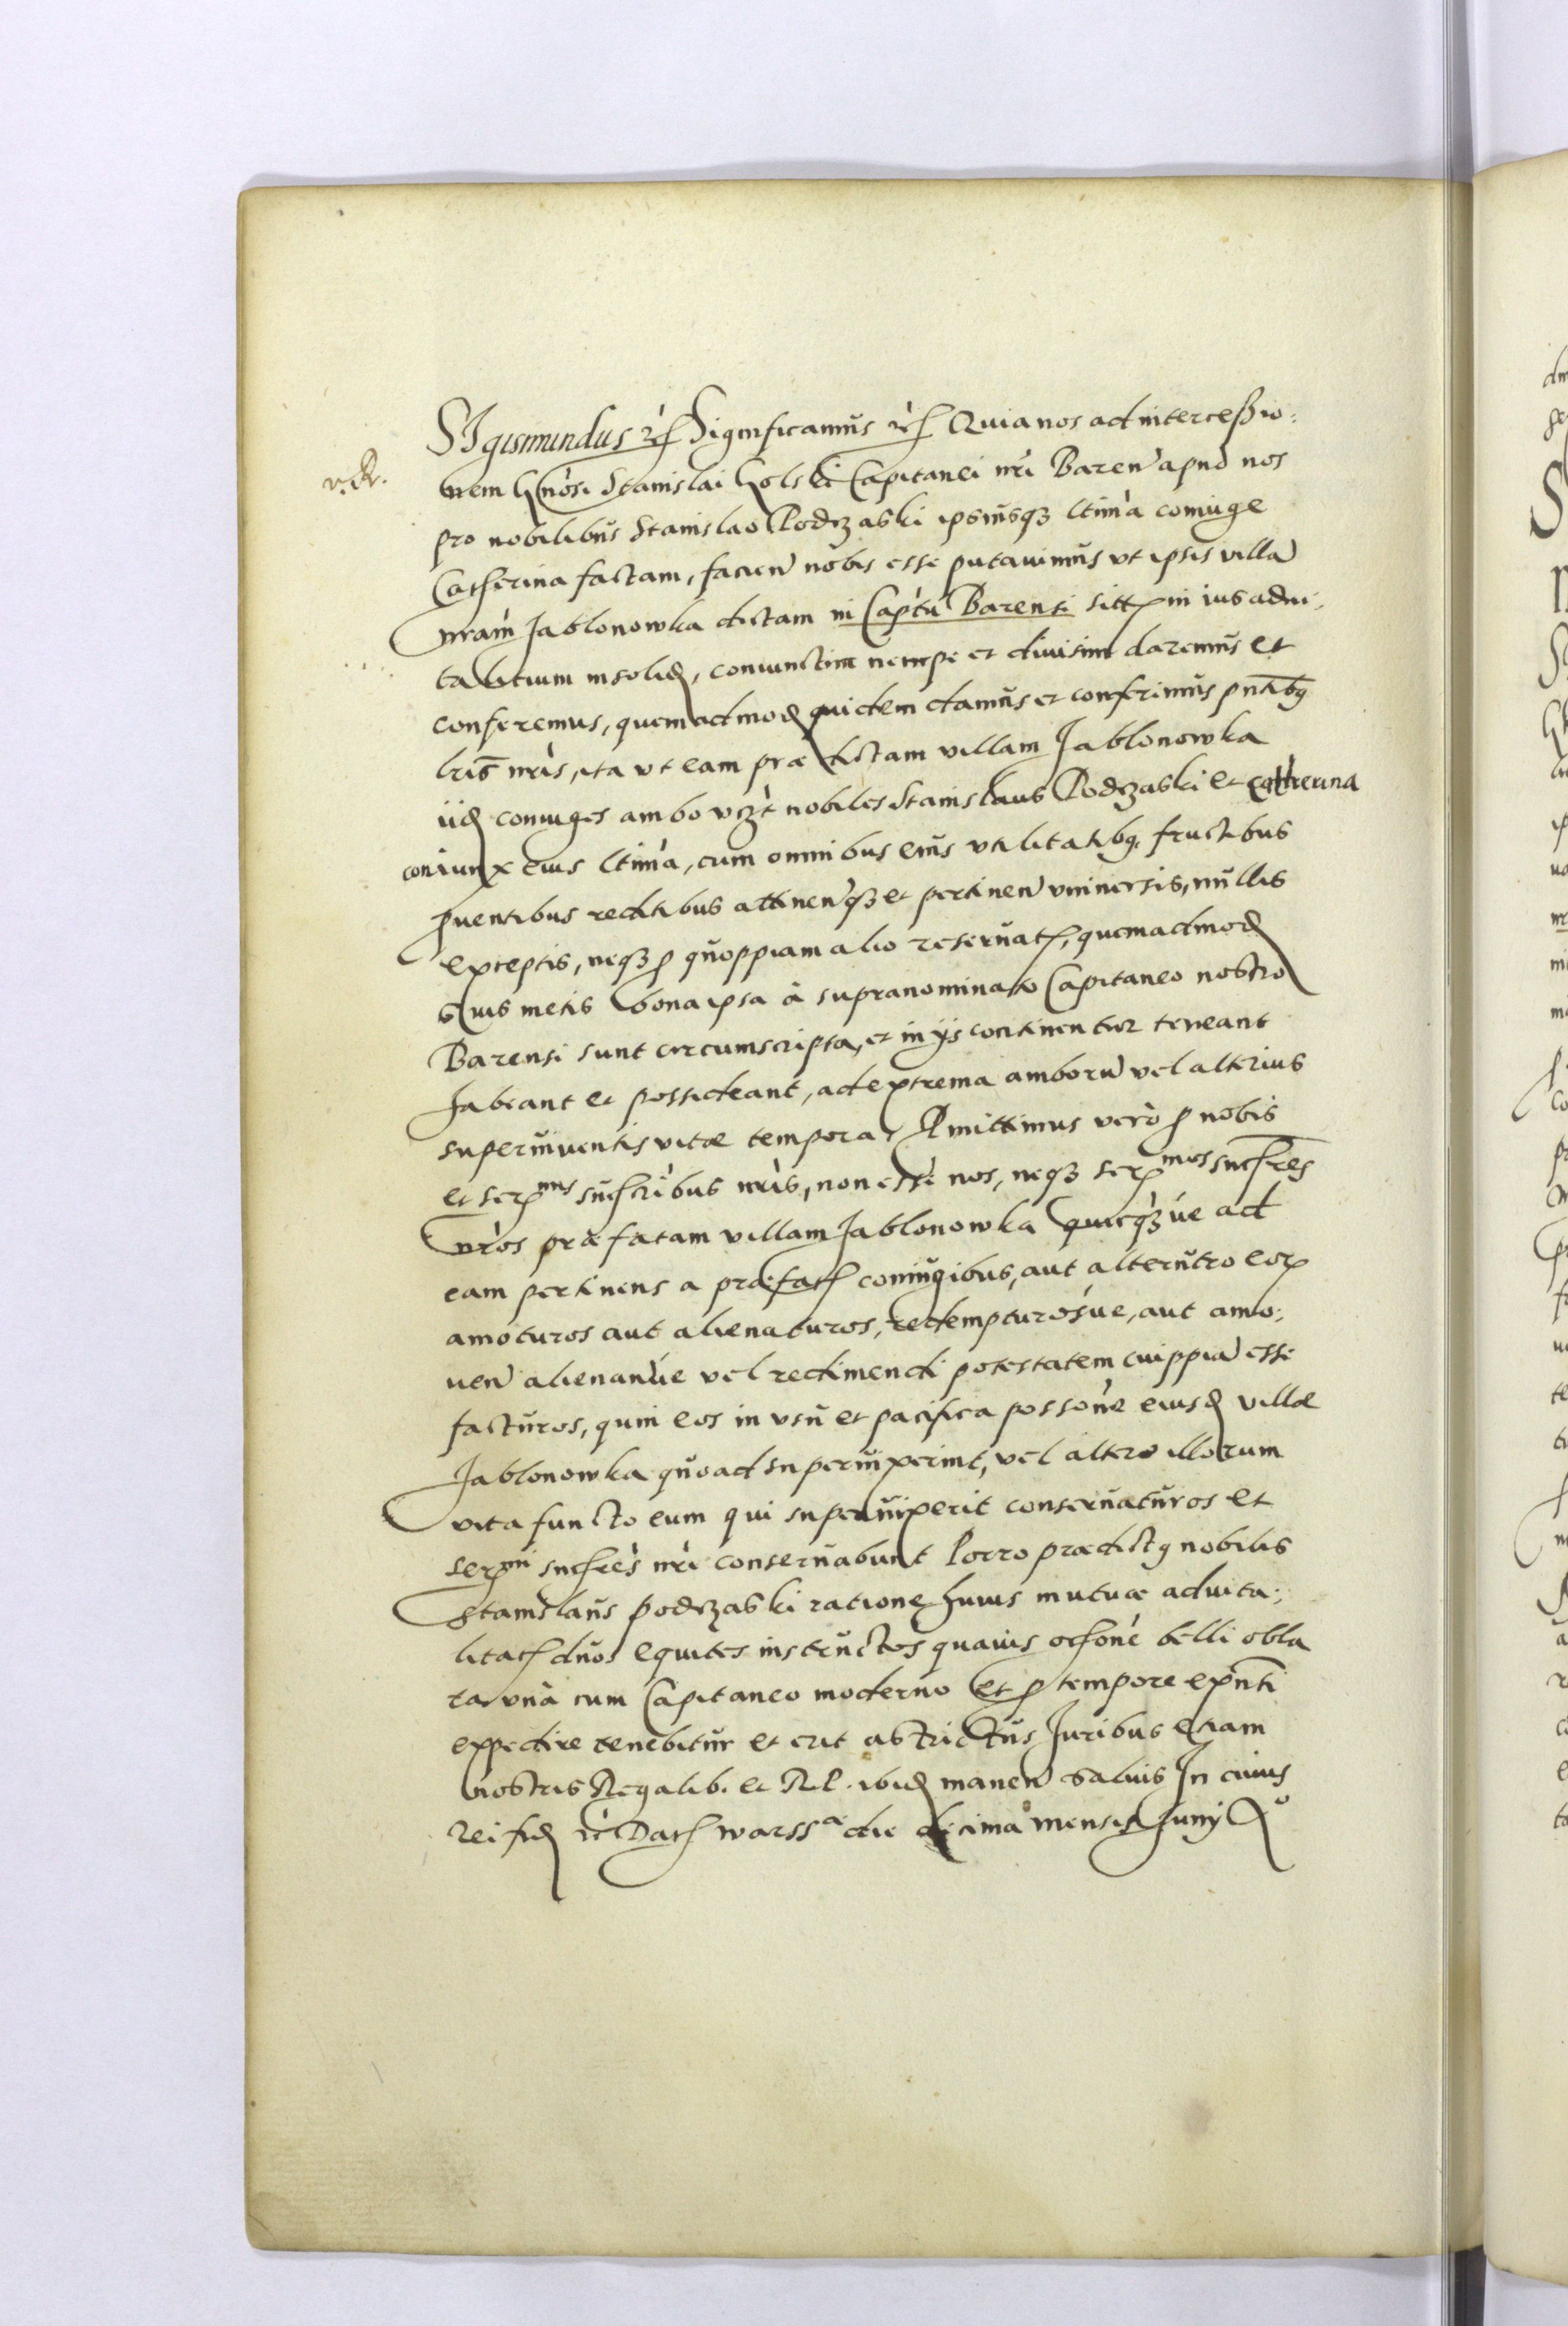 SIgismundus etc Significamus etc Quia nos ad intercessio:
nem Gnosi Stanislai Golski Capitanei nri Baren apud nos
pro nobilibus Stanislao Podczaski ipsiusq3 ltima coniuge
Catherina factam, facien nobis esse putauimus vt ipsis villa
nram Jablonowka dictam in Captu Barensi sitt in ius adui,
talitium insolid, coniunctim nempe et diuisim daremus et
conferemus, quemadmod quidem damus et conferimus pntibq
lris nris, ita vt eam præ dictam villam Jablonowka
iid coniuges ambo vczt nobiles Stanislaus Podczaski et Catherina
coniunx eius ltima, cum omnibus eius vtilitatibq. fructibus
puentibus reditibus attinenq3 et pertinen vniuersis, nullis
exceptis, neq3 p quoppiam alio reseruat, quemadmod
suis metis bona ipsa à supranominato Capitaneo nostro
Barensi sunt circumscripta, et in ijs continentur teneant
habeant et possideant, ad extrema amboru vel alterius
superuiuentis vitæ tempora. Pmittimus verò p nobis
et sermis succribus nris, non esse nos, neq3 sermos succres
nros præfatam villam Jablonowka quicq3ue ad
eam pertinens a præfat coniugibus, aut alterutro eor
amoturos aut alienaturos, redempturosue, aut amo:
uen alienanue vel redimendi potestatem cuippia esse
facturos, quin eos in vsu et pacifica possone eiusd villæ
Jablonowka quoad superuixerint, vel altero illorum
vita functo eum qui superuixerit conseruaturos et
sermi succres nri conseruabunt Porro prædictq nobilis
Stanislaus podczaski ratione huius mutuæ aduita:
litat duos equites instructos quauis occone belli obla
ta vna cum Capitaneo moderno et p tempore exnti
expedire tenebitur et erit astrictus Juribus etiam
nostris Regalib. et RP. ibid manen saluis In cuius
rei fid etc Dat warssa die decima mensis Junij